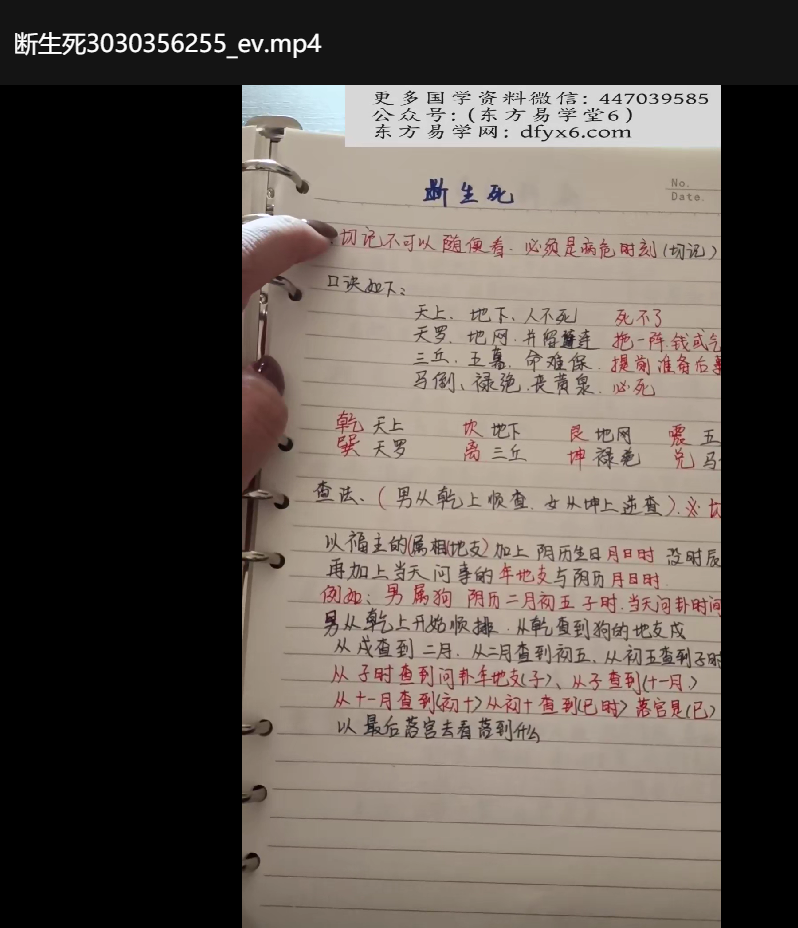 断生死3030356255_ev.mp4
更多国学资料微信：447039585
公众号：（东方易学堂6）
东方易学网：dfyx6.com
断生死
No.
Date.
切记不可以随便看．必须是病危时刻（切记）
口诀如下：
天上、地下、人不死 死不了
天罗、地网、并留连 拖一阵 钱或
三丘、五墓、命难保．提前准备后事
马倒、禄绝、丧黄泉．必死
乾 天上 坎 地下 艮 地网 震 五
巽 天罗 离 三丘 坤 禄绝 兑 马
查法、（男从乾上顺查．女从坤上逆查）．必
以福主的（属相地支）加上阴历生日月日时 没时辰
再加上当天问事的年地支与阴历月日时．
例如：男属狗 阴历二月初五 子时．当天问卦时间
男从乾上开始顺排．从乾查到狗的地支戌
从戌查到二月．从二月查到初五、从初五查到子时
从子时查到问卦年地支（子）、从子查到（十一月）
从十一月查到（初十）从初十查到（巳时）落宫是（巳）
以最后落宫去看落到什么